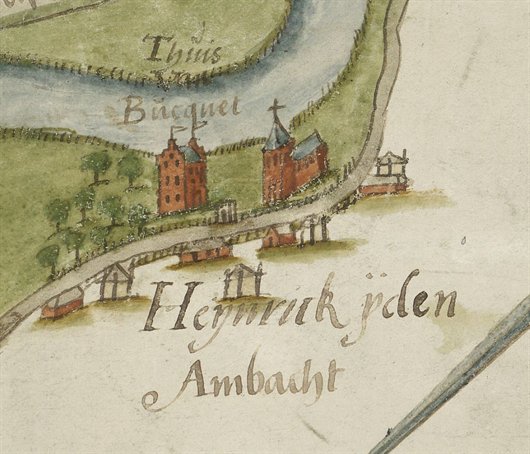 Thuis
van
Bucquet
Heÿnrick ÿden
Ambacht